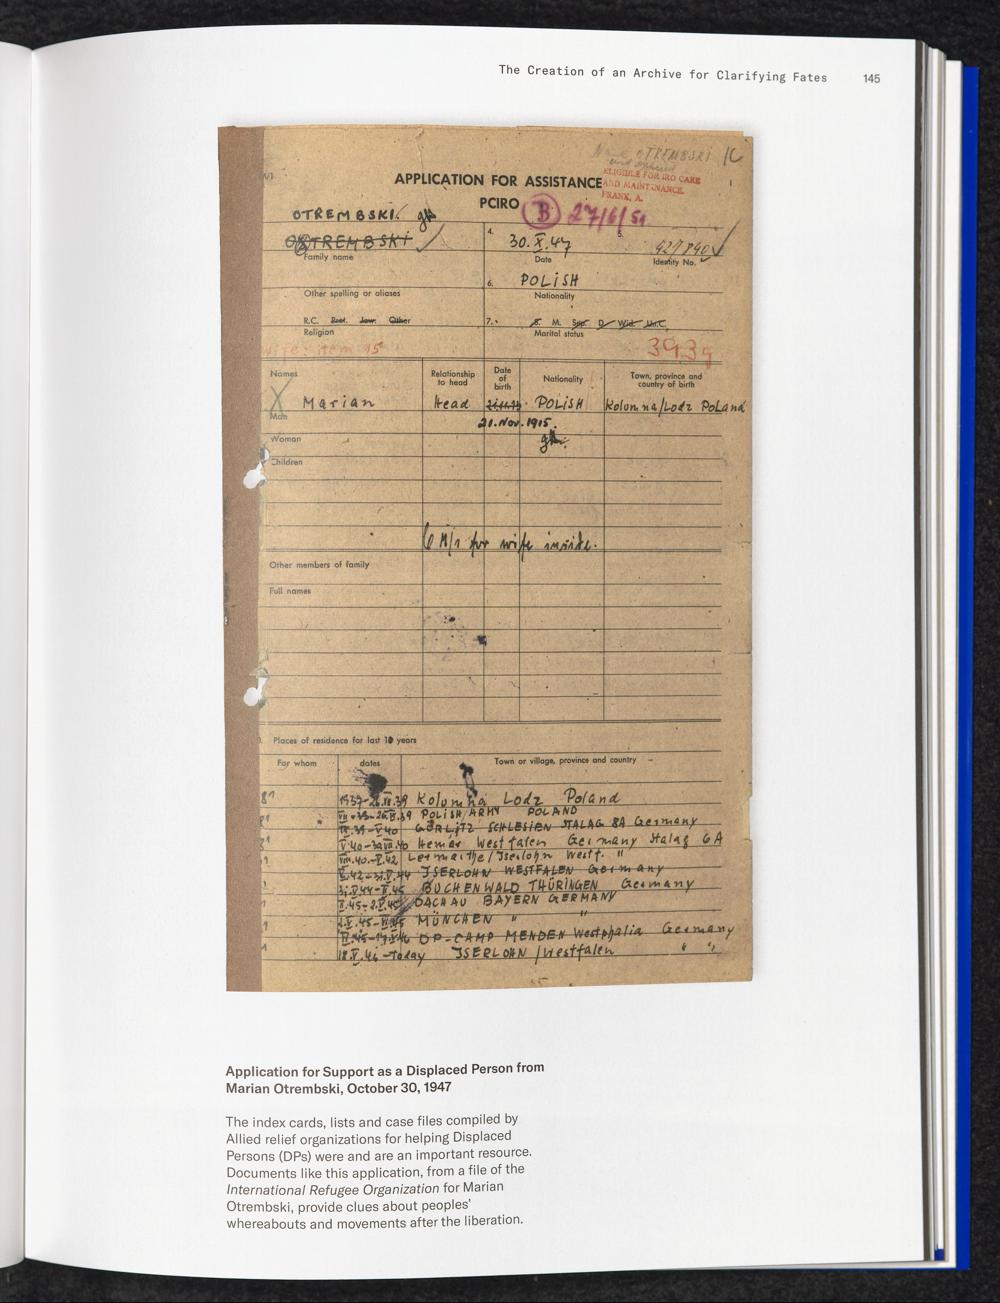 The Creation of an Archive for Clarifying Fates 145
OTREMBSKI 1C
ELIGIBLE FOR IRO CARE
AND MAINTENANCE.
FRANK, A.
APPLICATION FOR ASSISTANCE
PCIRO B 27/6/51
OTREMBSKI.
4. 30.X.47 5.
Family name Date Identity No.
6. POLiSH
Other spelling or aliases Nationality
R.C. Prot. Jew. Other 7. S. M. Sep. D. Wid. Un.C.
Religion Marital status
wife: item 15 3939
Names Relationship to head Date of birth Nationality Town, province and country of birth
X Marian Head POLiSH Kolumna/Lodz PoLand
Man 21.Nov.1915.
Woman
Children
for wife inside.
Other members of family
Full names
Places of residence for last 10 years
For whom dates Town or village, province and country
Kolumna Lodz Poland
POLiSH ARMY POLAND
GÖRLiTZ SCHLESIEN STALAG 8A Germany
Hemer Westfalen Germany Stalag 6A
Letmathe/Jserlohn Westf. "
JSERLOHN WESTFALEN Germany
BUCHENWALD THÜRINGEN Germany
DACHAU BAYERN GERMANY
MÜNCHEN " "
DP-CAMP MENDEN Westphalia Germany
18.V.46-Today JSERLOHN/Westfalen " "
Application for Support as a Displaced Person from
Marian Otrembski, October 30, 1947
The index cards, lists and case files compiled by
Allied relief organizations for helping Displaced
Persons (DPs) were and are an important resource.
Documents like this application, from a file of the
International Refugee Organization for Marian
Otrembski, provide clues about peoples'
whereabouts and movements after the liberation.